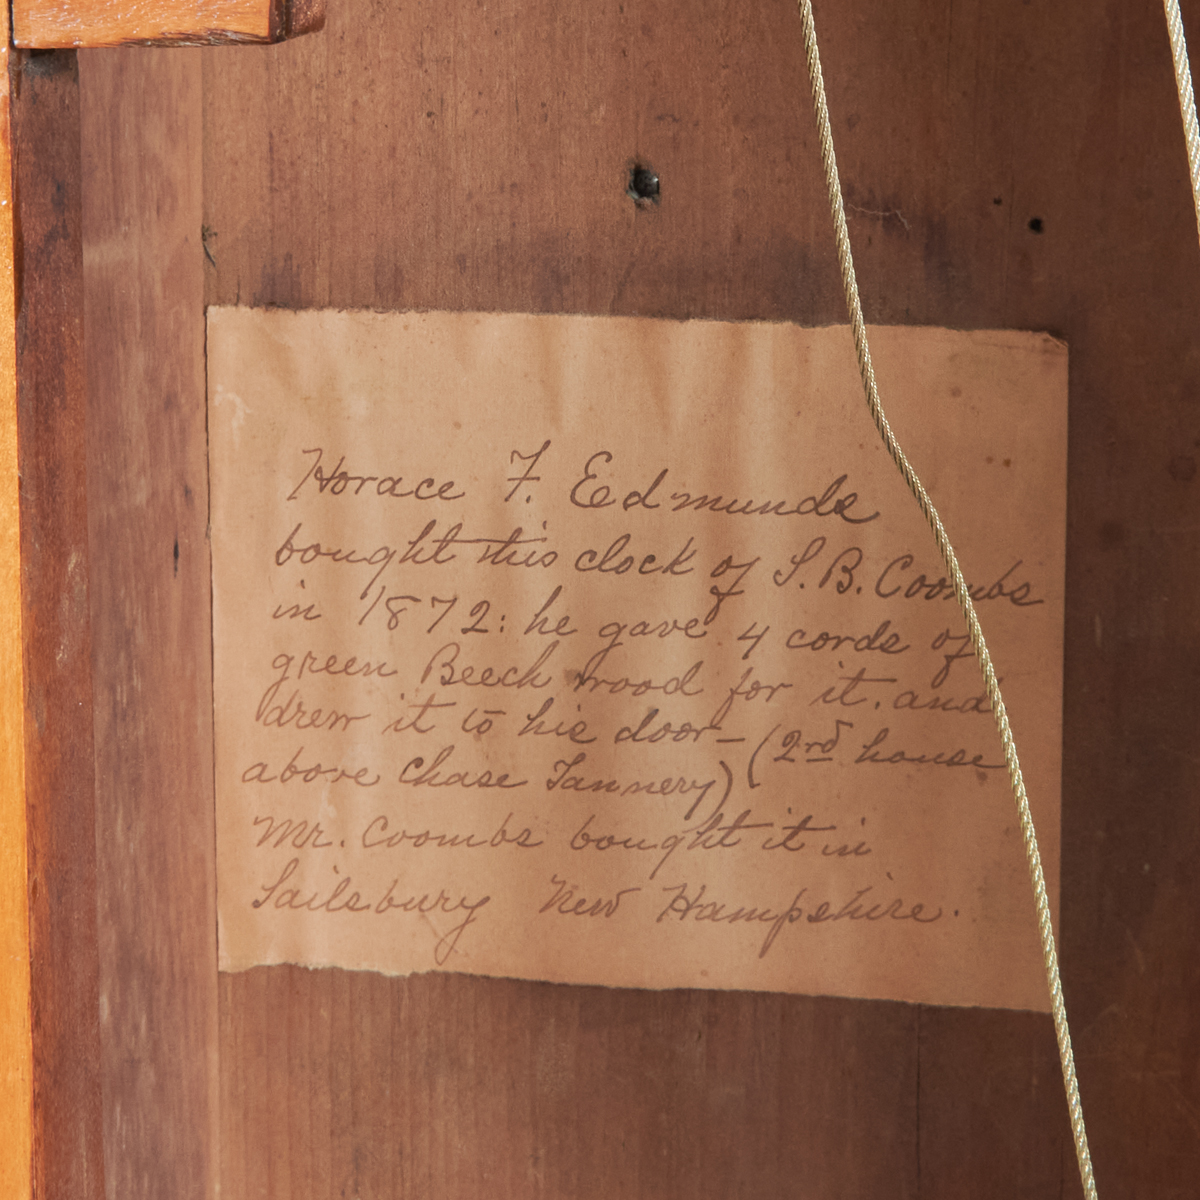 Horace F. Edmunds
bought this clock of S. B. Coombs
in 1872: he gave 4 cords of
green Beech wood for it. and
drew it to his door – (2rd house
above Chase Tannery)
Mr. Coombs bought it in
Sailsbury New Hampshire.